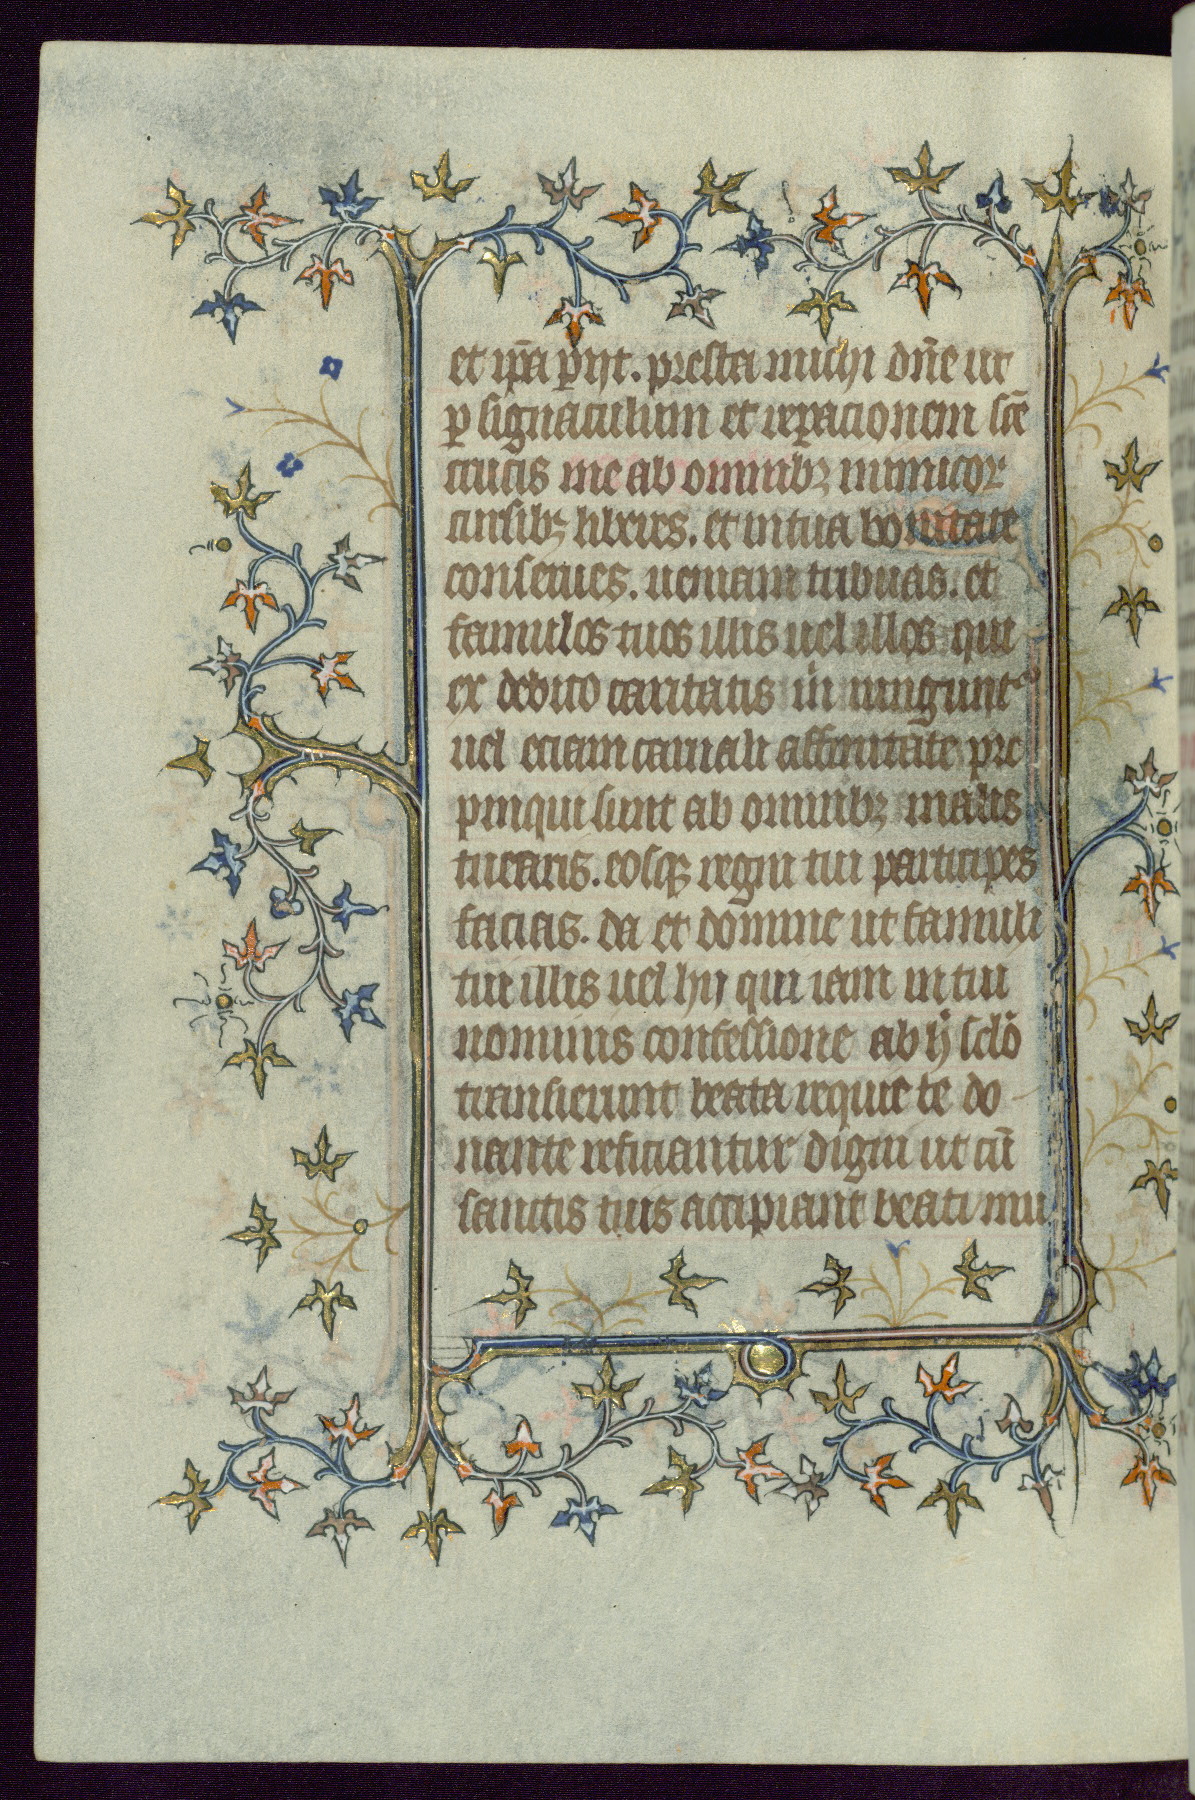 et ip̄a p̄ijt. presta michi dn̄e ut
ꝑ signaculum et repacionem sc̄e
crucis me ab omnibꝫ inimicoꝝ
cursibꝫ liberes. et in tua bonitate
conserues. ueniam tribuas. et
famulos tuos illis uel illos qui
ex debito caritatis m̊ iungunt᷑
uel eciam carnali affinitate pro
pinqui sunt ab omnibꝫ malis
tuearis. eosqꝫ regni tui participes
facias. da et domine ut famuli
tui illis uel hij qui iam in tui
nominis confessione ab h̊ sclō
transierunt beata requie te do
nante reficiantur digni ut cū
sanctis tuis accipiant beati mu